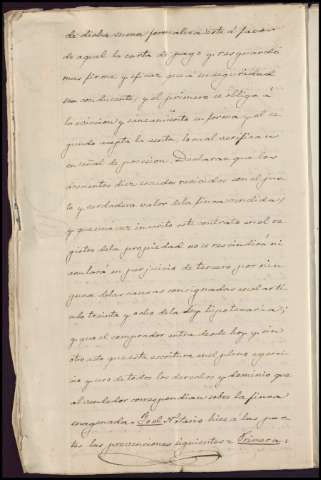 de dicha suma formaliza este á favor
de aquel la carta de pago y resguardo
mas firme y eficaz que á su seguridad
sea conducente, y el primero se obliga á
la eviccion y saneamiento en forma y el se-
gundo acepta la venta, la cual verifica
en señal de posesion. Declaran que los
doscientos diez escudos recibidos son el jus-
to y verdadero valor de la finca vendida;
y que una vez inscrito este contrato en el re-
gistro de la propiedad no se rescindirá ni
anulará en perjuicio de tercero por nin-
guna de las causas consignadas en el artí-
culo treinta y ocho de la ley hipotecaria;
y que el comprador entra desde hoy y sin
otro acto que esta escritura en el pleno ejerci-
cio y uso de todos los derechos y dominio que
al vendedor correspondian sobre la finca
enagenada. Yo el Notario hice á las par-
tes las prevenciones siguientes = Primera: